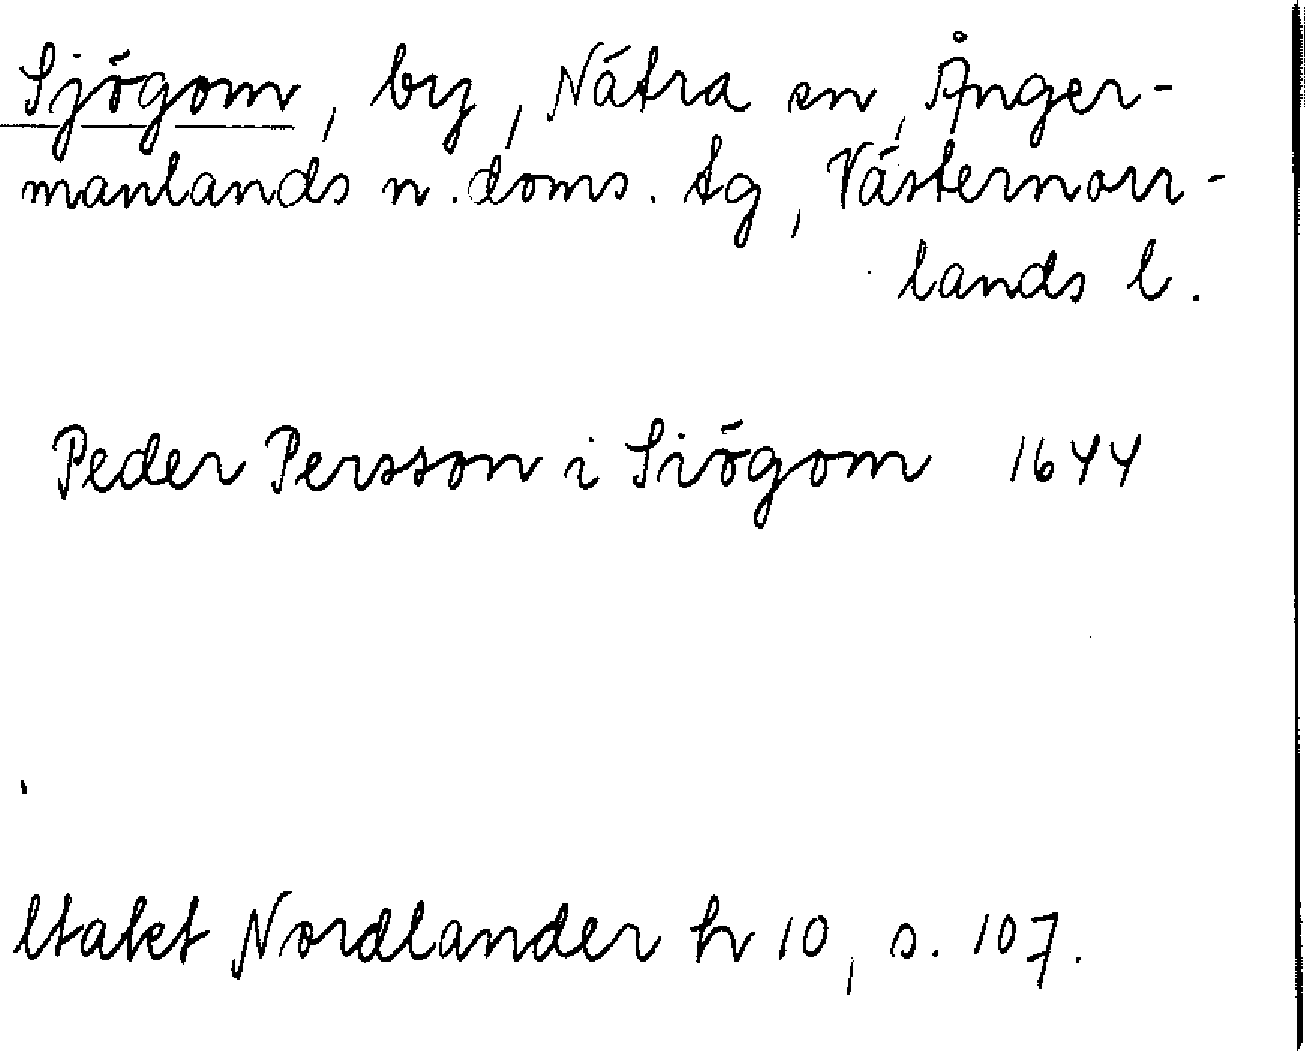 Sjögom, by, Nätra sn, Ånger-
manlands n. doms. tg, Västernorr-
lands l.
Peder Persson i Siögom 1644
Nordlander h 10, s. 107.